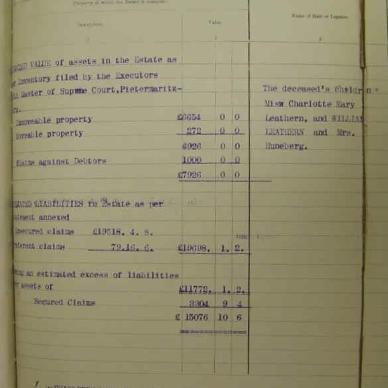 Property of which the Estate is composed.
Description. Value. Name of Heir or Legatee.
VALUE of assets in the Estate as
Inventory filed by the Executors
Master of Supreme Court, Pietermaritz-
The deceased's Children -
Miss Charlotte Mary
Immoveable property £6654 0 0
Leathern, and WILLIAM
Moveable property 272 0 0
LEATHERN and Mrs.
6926 0 0
Huneberg.
Claims against Debtors 1000 0 0
£7926 0 0
LIABILITIES in Estate as per
annexed
Unsecured claims £19618. 4. 8.
claims 79.16. 6. £19698. 1. 2.
an estimated excess of liabilities
assets of £11772. 1. 2.
Secured Claims 3304 9 4
£ 15076 10 6